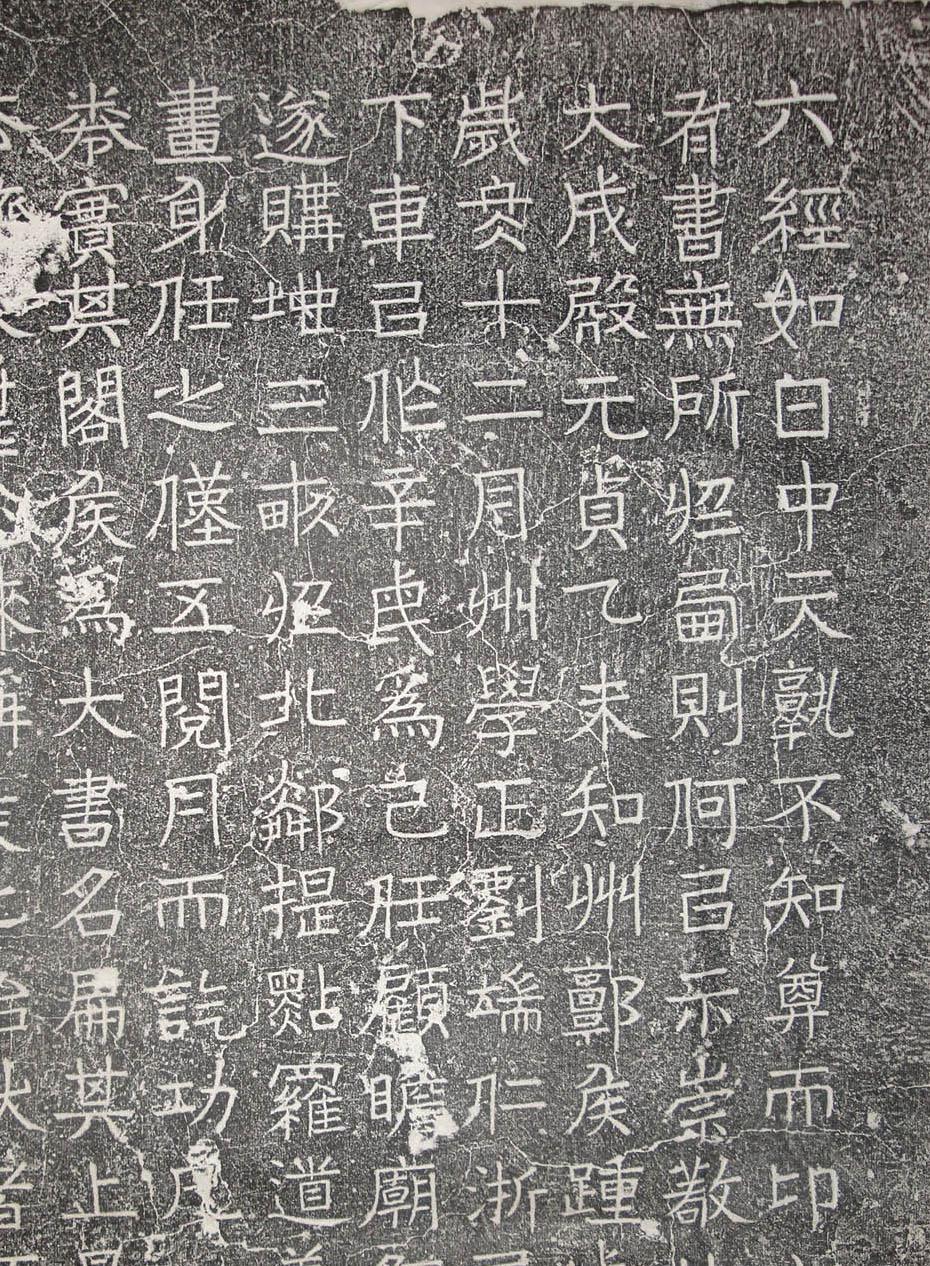 六經如日中天孰不知尊而卬
有書無所歸啚則何㠯示崇教
大成殿元貞乙未知州矦踵
歲亥十二月州學正劉端仁浙
下車㠯作辛民為己任顧瞻廟
遂購地三畝歸北鄰提點羅道
畫身任之僅五閱月而訖功
實其閣矦為大書名扁其上